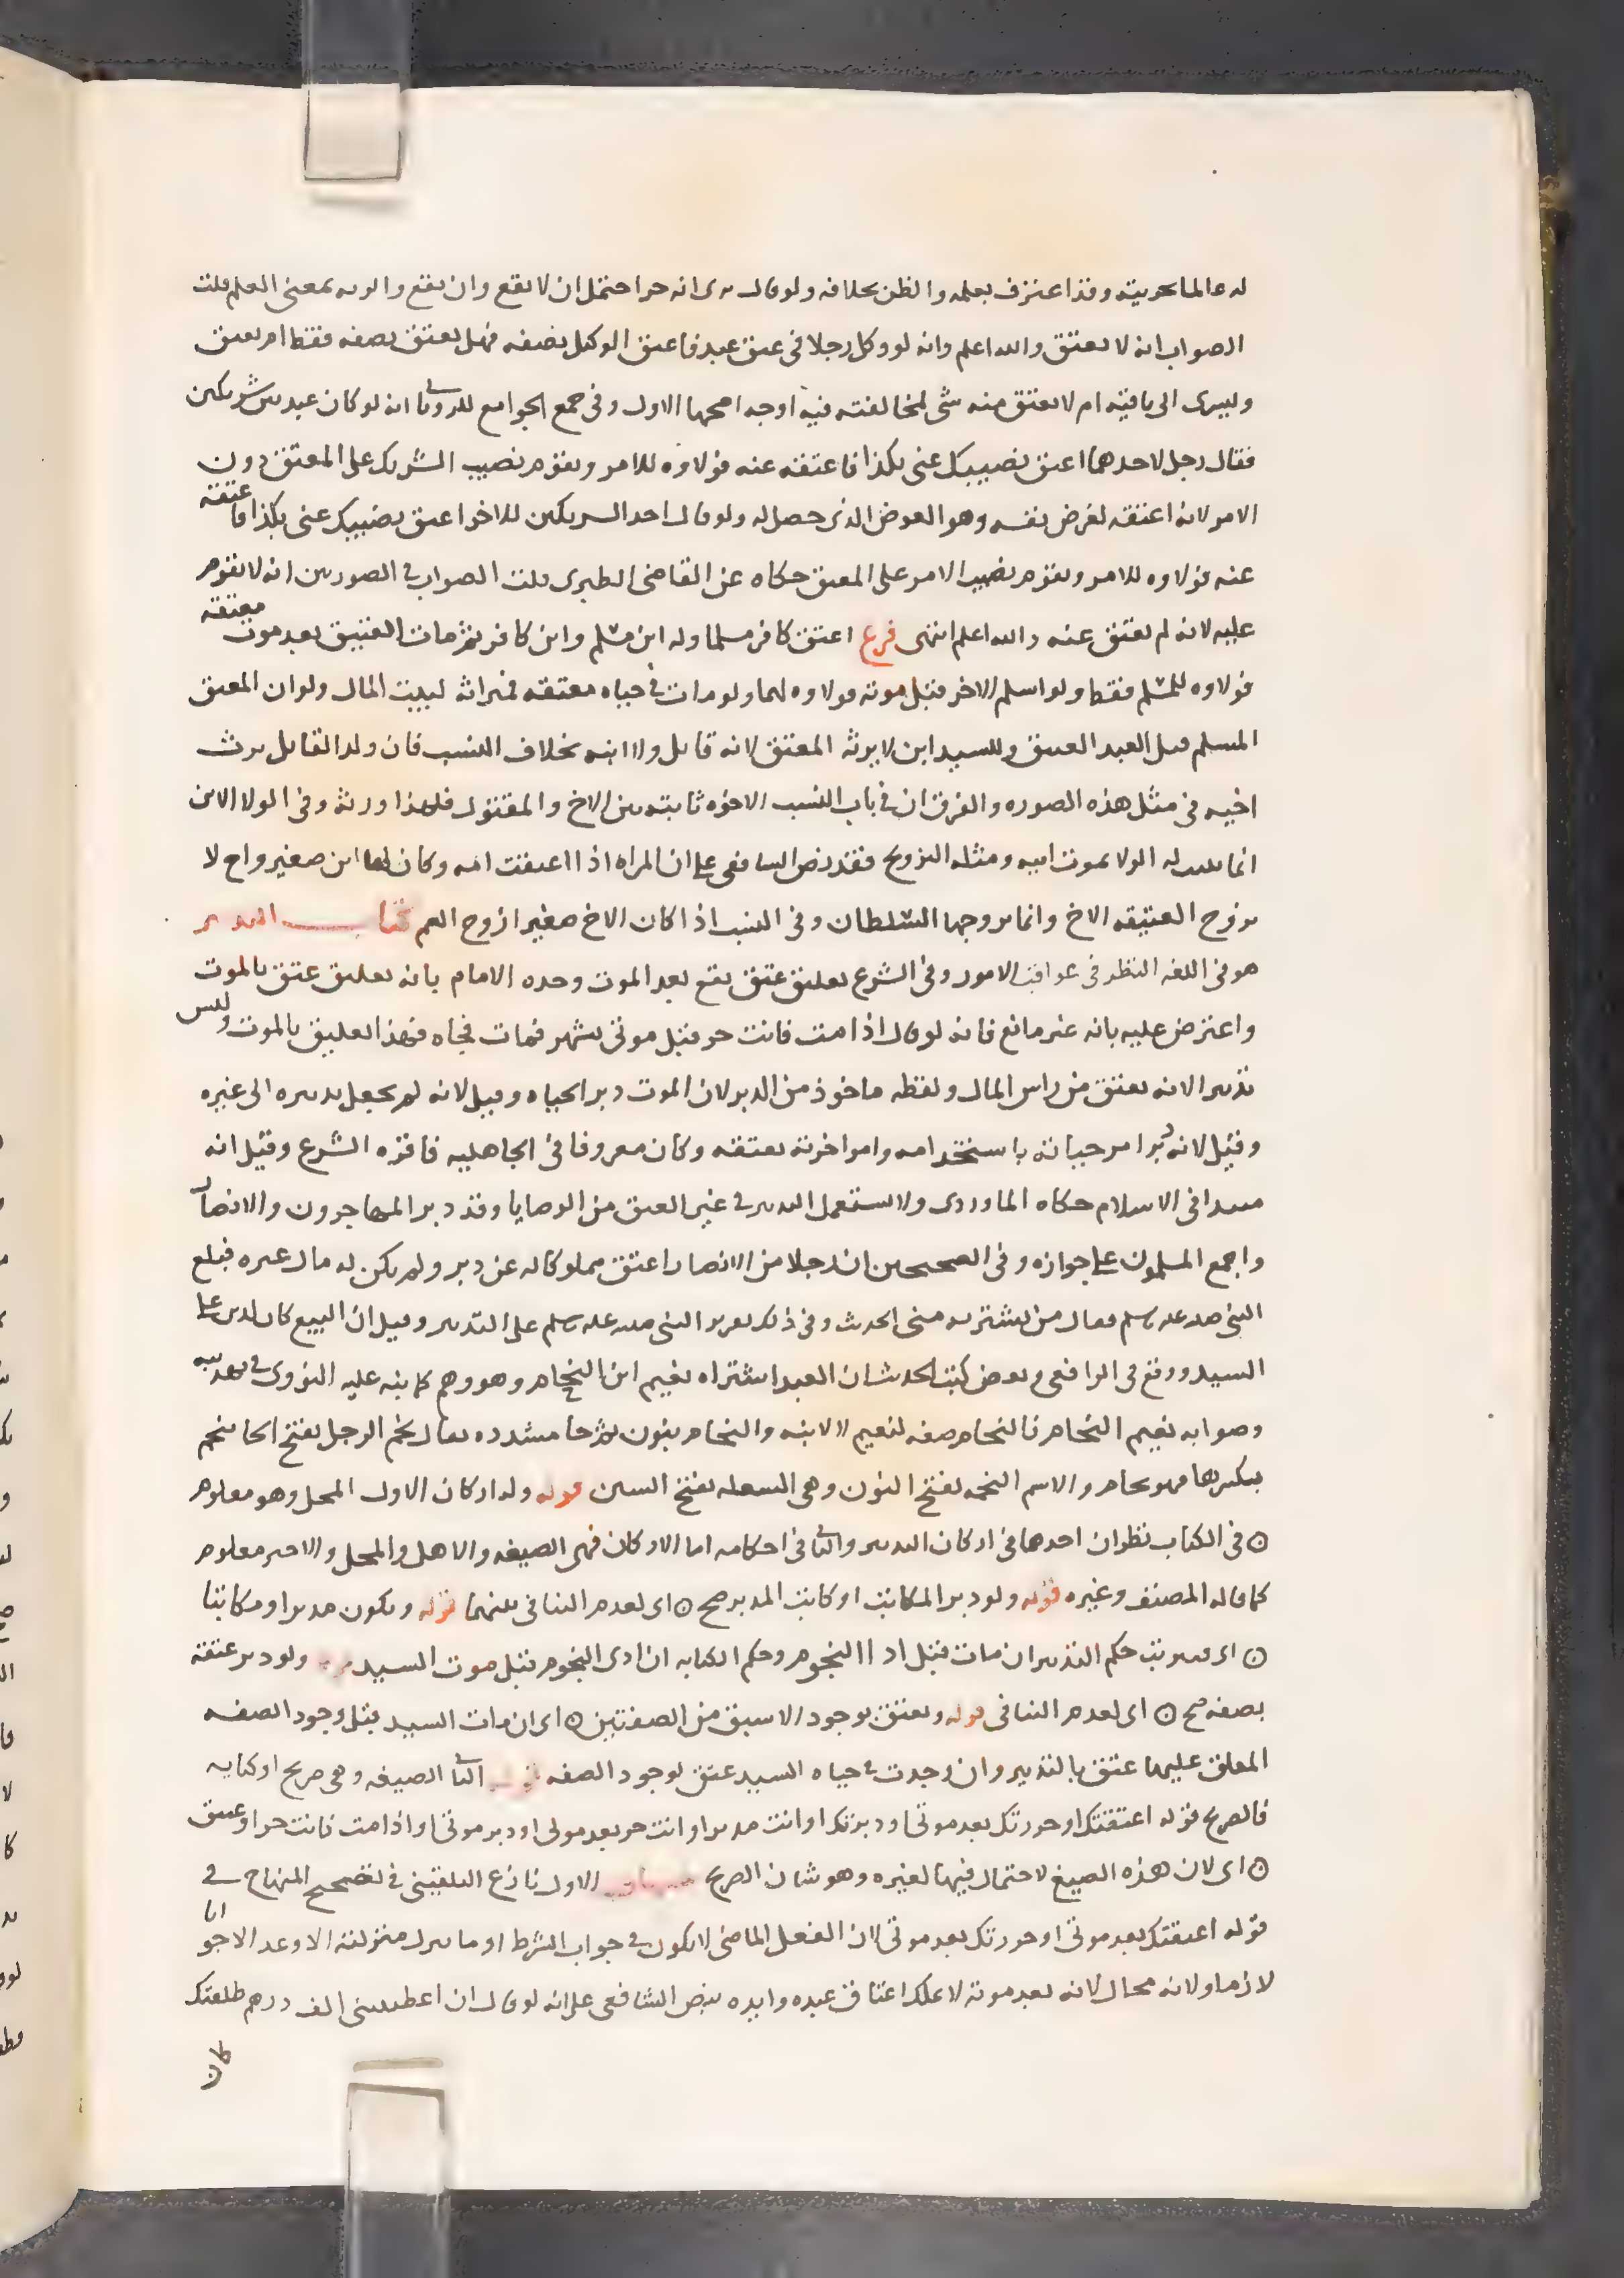 له عالما بحريته وقد اعترف بعلمه والظن بخلافه ولو قال يرى انه حر احتمل ان لا يقع وان يقع والرويه بمعنى العلم قلت
الصواب انه لا يعتق والله اعلم وانه لو وكل رجلا في عتق عبد فاعتق الوكيل نصفه فهل يعتق نصفه فقط ام يعتق
ويسرى الى باقيه ام لا يعتق منه شى لمخالفته فيه اوجه اصحها الاول وفي جمع الجوامع للرويانى انه لو كان عبد بين شريكين
فقال رجل لاحدهما اعتق نصيبك عنى بكذا فاعتقه عنه فولاوه للامر ويقوم نصيب الشريك على المعتق دون
الامر لانه اعتقه لغرض نفسه وهو العوض الذى حصل له ولو قال احد الشريكين للاخر اعتق نصيبك عنى بكذا فاعتقه
عنه فولاوه للامر ويقوم نصيب الامر على المعتق حكاه عن القاضي الطبرى قلت الصواب في الصورتين انه لا يقوم
عليه لانه لم يعتق عنه والله اعلم انتهى فرع اعتق كافر مسلما وله ابن مسلم وابن كافر ثم مات العتيق بعد موت معتقه
فولاوه للمسلم فقط ولو اسلم الاخر قبل موته فولاوه لهما ولو مات في حياه معتقه فميراثه لبيت المال ولو ان المعتق
المسلم قتل العبد العتيق وللسيد ابن لا يرثه المعتق لانه قاتل ولا ابنه بخلاف النسب فان ولد القاتل يرث
اخيه في مثل هذه الصوره والفرق ان في باب النسب الاخوه ثابته بين الاخ والمقتول فلهذا ورثه وفي الولا الابن
انما يثبت له الولا بموت ابيه ومثله التزويج فقد نص الشافعى على ان المراه اذا اعتقت امه وكان لها ابن صغير واخ لا
يزوج العتيقه الاخ وانما يزوجها السلطان وفي النسب اذا كان الاخ صغيرا زوج العم كتاب التدبير
هو في اللغه النظر في عواقب الامور وفي الشرع تعليق عتق يقع بعد الموت وحده الامام بانه تعليق عتق بالموت
واعترض عليه بانه غير مانع فانه لو قال اذا مت فانت حر قبل موتى بشهر فمات فجاه فهذا تعليق بالموت وليس
تدبيرا لانه يعتق من راس المال ولفظه ماخوذ من الدبر لان الموت دبر الحياه وقيل لانه لم يجعل تدبيره الى غيره
وقيل لانه دبر امر حياته باستخدامه وامر اخرته بعتقه وكان معروفا في الجاهليه فاقره الشرع وقيل انه
مبتدا في الاسلام حكاه الماوردى ولا يستعمل التدبير في غير العتق من الوصايا وقد دبر المهاجرون والانصار
واجمع المسلمون على جوازه وفي الصحيحين ان رجلا من الانصار اعتق مملوكا له عن دبر ولم يكن له مال غيره فبلغ
النبي صلى الله عليه وسلم فقال من يشتريه منى الحديث وفي ذلك تقرير النبي صلى الله عليه وسلم على التدبير وقيل ان البيع كان لدين على
السيد ووقع في الرافعى وبعض كتب الحديث ان العبد اشتراه نعيم ابن النحام وهو وهم كما نبه عليه النووى في تهذيبه
وصوابه نعيم النحام فالنحام صفه لنعيم لا لابيه والنحام بنون ثم حا مشدده يقال نحم الرجل بفتح الحا ينحم
بكسرها فهو نحام والاسم النحمه بفتح النون وهى السعله بفتح السين قوله وله اركان الاول المحل وهو معلوم
⊙ في الكتاب نظران احدهما في اركان التدبير والثاني في احكامه اما الاركان فهى الصيغه والاهل والمحل والاخير معلوم
كما قاله المصنف وغيره قوله ولو دبر المكاتب او كاتب المدبر صح ⊙ اى لعدم التنافى بينهما قوله ويكون مدبرا ومكاتبا
⊙ اى فيثبت حكم التدبير ان مات قبل ادا النجوم وحكم الكتابه ان ادى النجوم قبل موت السيد قوله ولو دبر عتقه
بصفه صح ⊙ اى لعدم التنافى قوله ويعتق بوجود الاسبق من الصفتين ⊙ اى ان مات السيد قبل وجود الصفه
المعلق عليها عتق بالتدبير وان وجدت في حياه السيد عتق لوجود الصفه قوله الثاني الصيغه وهى صريح او كنايه
فالصريح قوله اعتقتك او حررتك بعد موتى او دبرتك او انت مدبر او انت حر بعد موتى او دبر موتى او اذا مت فانت حر او عتيق
⊙ اى لان هذه الصيغ لا احتمال فيها لغيره وهو شان الصريح الاول نازع البلقينى في تصحيح المنهاج في
قوله اعتقتك بعد موتى او حررتك بعد موتى لان الفعل الماضى لا يكون في جواب الشرط او ما ينزل منزلته الا وعدا لا جوابا
لازما ولانه محال لانه بعد موته لا يملك اعتاق عبده وايده بنص الشافعى على انه لو قال ان اعطيتنى الف درهم طلقتك
كان